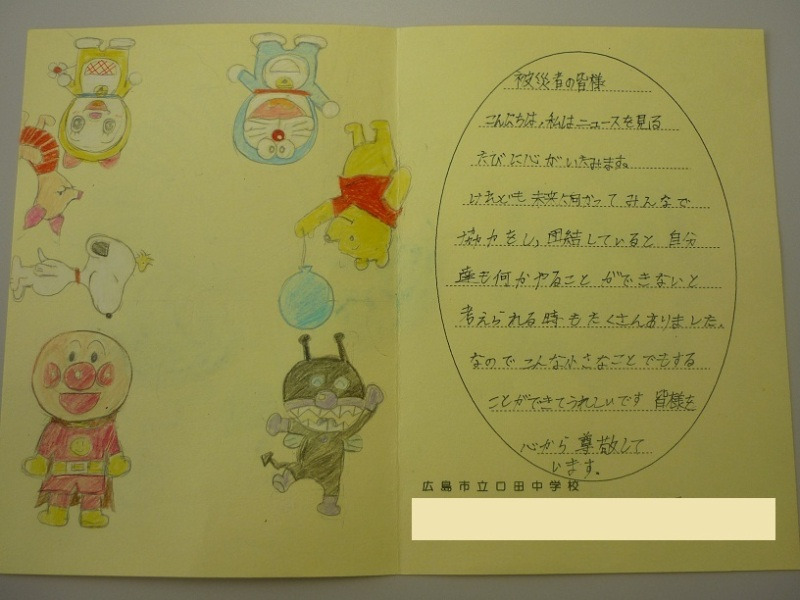 被災者の皆様
こんにちは、私はニュースを見る
たびに心がいたみます。
けれども未来へ向かってみんなで
協力をし、団結していると自分
達も何かやることができないと
考えられる時もたくさんありました。
なのでこんな小さなことでもする
ことができてうれしいです 皆様を
心から尊敬して
います。
広島市立口田中学校